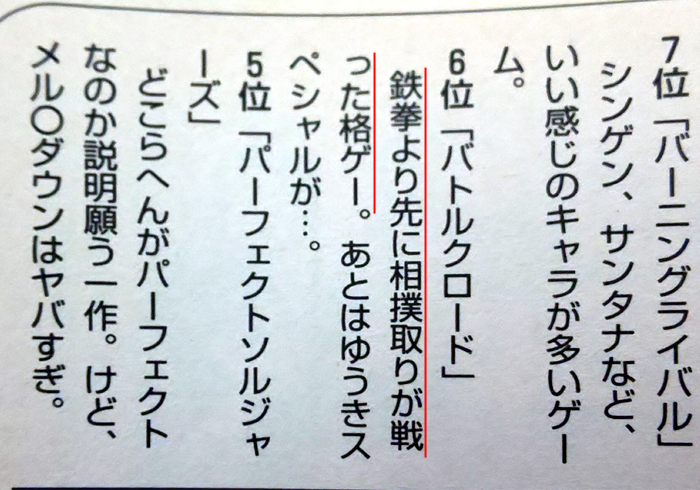 7位「バーニングライバル」
シンゲン、サンタナなど、
いい感じのキャラが多いゲー
ム。
6位「バトルクロード」
鉄拳より先に相撲取りが戦
った格ゲー。あとはゆうきス
ペシャルが…。
5位「パーフェクトソルジャ
ーズ」
どこらへんがパーフェクト
なのか説明願う一作。けど、
メル〇ダウンはヤバすぎ。